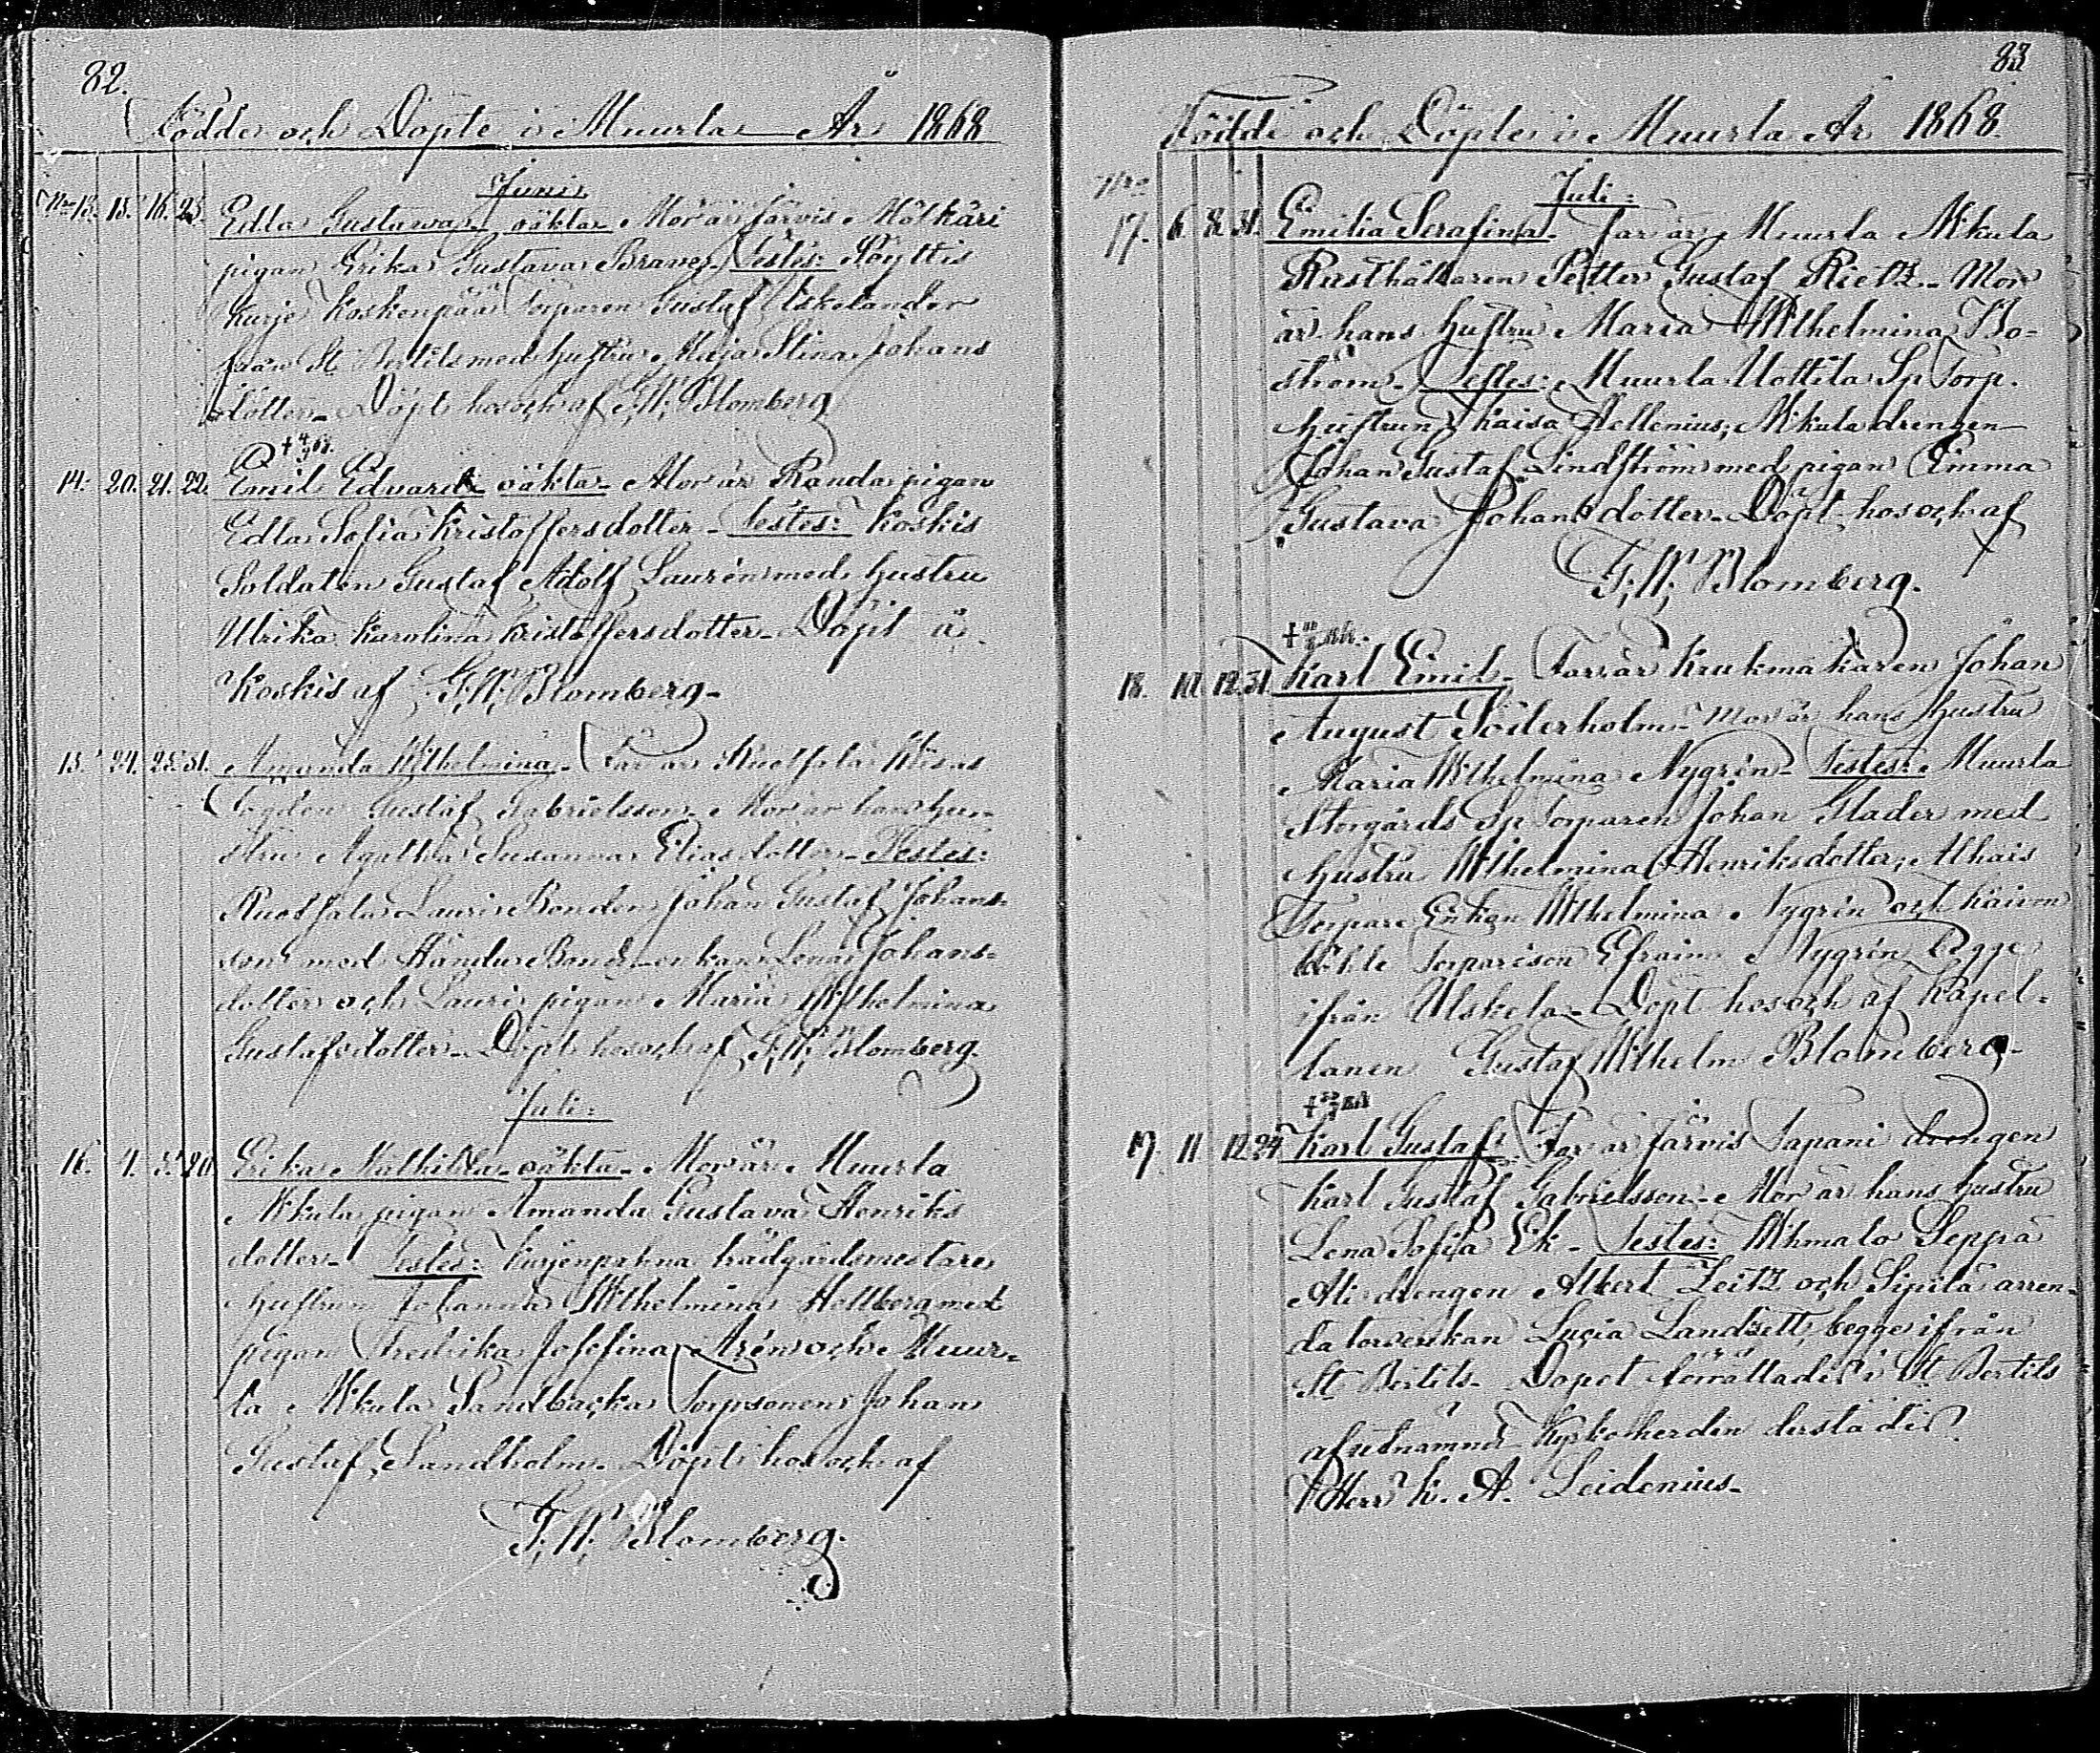 82.
Födde och Döpte i Muurla År 1868
Juni
Nro 13. 15. 16. 25. Edla Gustava oäkta Mor är Järvis Mölkäri
pigan Erika Gustava Braner Testes: Pöyttis
Kurje Koskenpää Torparen Gustaf Uskelander
från St Bertils med hustru Maja Stina Johans
dotter Döpt hos och af G. W. Blomberg
14. 20. 21. 22. Emil Edvard oäkta Mor är Randa pigan
Edla Sofia Kristoffersdotter Testes: Koskis
Soldaten Gustaf Adolf Laurén med hustru
Ulrika Karolina Kristoffersdotter Döpt å
Koskis af G. W. Blomberg
15. 24. 25. 31. Amanda Wilhelmina Far är Ruotsala
Fogden Gustaf Gabrielsson Mor är hans hu-
stru Agatha Susanna Eliasdotter Testes:
Ruotsala Lauri Bonden Johan Gustaf Johans-
son med Händu Bonde-enkan Lena Johans-
dotter och Lauri pigan Maria Wilhelmina
Gustafsdotter Döpt hos och af G. W. Blomberg
Juli:
16. 4. 5. 20. Erika Mathilda oäkta Mor är Muurla
Nikula pigan Amanda Gustava Henriks
dotter Testes: Kurjenpahna trädgårdsmestare
hustrun Johanna Wilhelmina Hellberg med
pigan Fredrika Josefina Arén och Muur-
la Nikula Sandbacka Torpsonen Johan
Gustaf Sandholm Döpt hos och af
G. W. Blomberg.
83
Födde och Döpte i Muurla År 1868
Nro
Juli:
17. 6. 8. 31. Emilia Serafina Far är Muurla Nikula
Rusthållaren Petter Gustaf Rietz Mor
är hans hustru Maria Wilhelmina Bo-
ström Testes: Muurla Uottila Sp Torp.
hustrun Kaisa Hellenius; Nikula drengen
Johan Gustaf Lindström med pigan Emma
Gustava Johansdotter Döpt hos och af
G. W. Blomberg.
18. 10. 12. 31. Karl Emil Far är Krukmakaren Johan
August Söderholm Mor är hans hustru
Maria Wilhelmina Nygrén Testes: Muurla
Storgårds Sp Torparen Johan Glader med
hustru Wilhelmina Henriksdotter,
Torpare Enkan Wilhelmina Nygrén och
Torpareson Efraim Nygrén begge
ifrån Uskela Döpt hos och af Kapel-
lanen Gustaf Wilhelm Blomberg
19. 11. 12. 24. Karl Gustaf Far är Järvis Tapani drengen
Karl Gustaf Gabrielsson Mor är hans hustru
Lena Sofia Ek Testes: Wihmalo Seppä
Ali drengen Albert Zeitz och Sipilä arren-
datorsenkan Lucia Landzett, begge ifrån
St Bertils Dopet förrättades i St Bertils
af utnämnde Kyrkoherden derstädes
Herr K. A. Leidenius